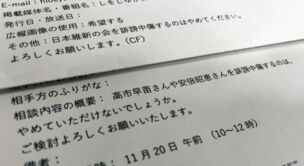 E-mail：
掲載媒体名・番組名：しをじゅか
発行日・放送日：
広報画像の使用：希望する
その他：日本維新の会を誹謗中傷するのはやめてください。
よろしくお願いします。(CF)
相手方のふりがな：
相談内容の概要：高市早苗さんや安倍昭恵さんを誹謗中傷するのは、
やめていただけないでしょうか。
ご検討よろしくお願いいたします。
備考：
11月20日 午前 （10～12時）